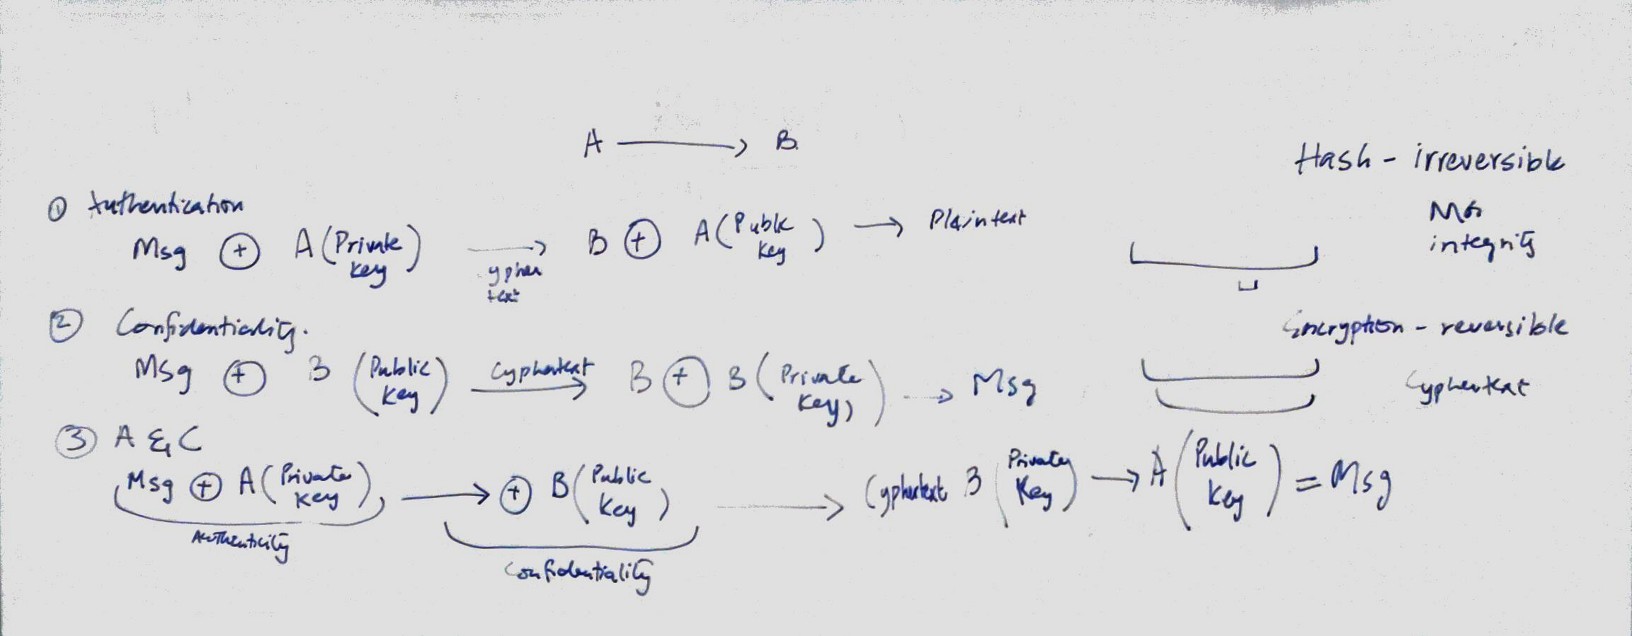 A ⟶ B
Hash - irreversible
① Authentication
Msg ⊕ A (Private Key) ⟶ B ⊕ A (Public Key) ⟶ Plaintext
cypher text
Msg integrity
② Confidentiality.
Msg ⊕ B (Public Key) ⟶ B ⊕ B (Private Key) ⟶ Msg
Cyphertext
Encryption - reversible
Cyphertext
③ A & C
Msg ⊕ A (Private Key) ⟶ ⊕ B (Public Key) ⟶ Cyphertext B (Private Key) ⟶ A (Public Key) = Msg
Authenticity
Confidentiality